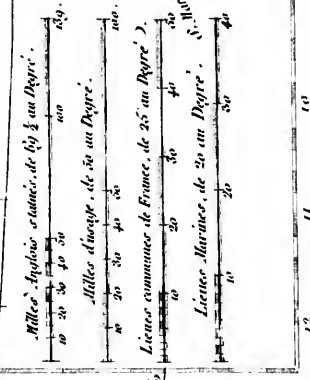 Milles Anglois statués, de 69 ½ au Degré.
10 20 30 40 50 100 139.
Milles d'usage, de 50 au Degré.
10 20 30 40 50 100.
Lieues communes de France, de 25 au Degré
10 20 30 40 50
Lieues Marines, de 20 au Degré.
10 20 30 40
10
11
12